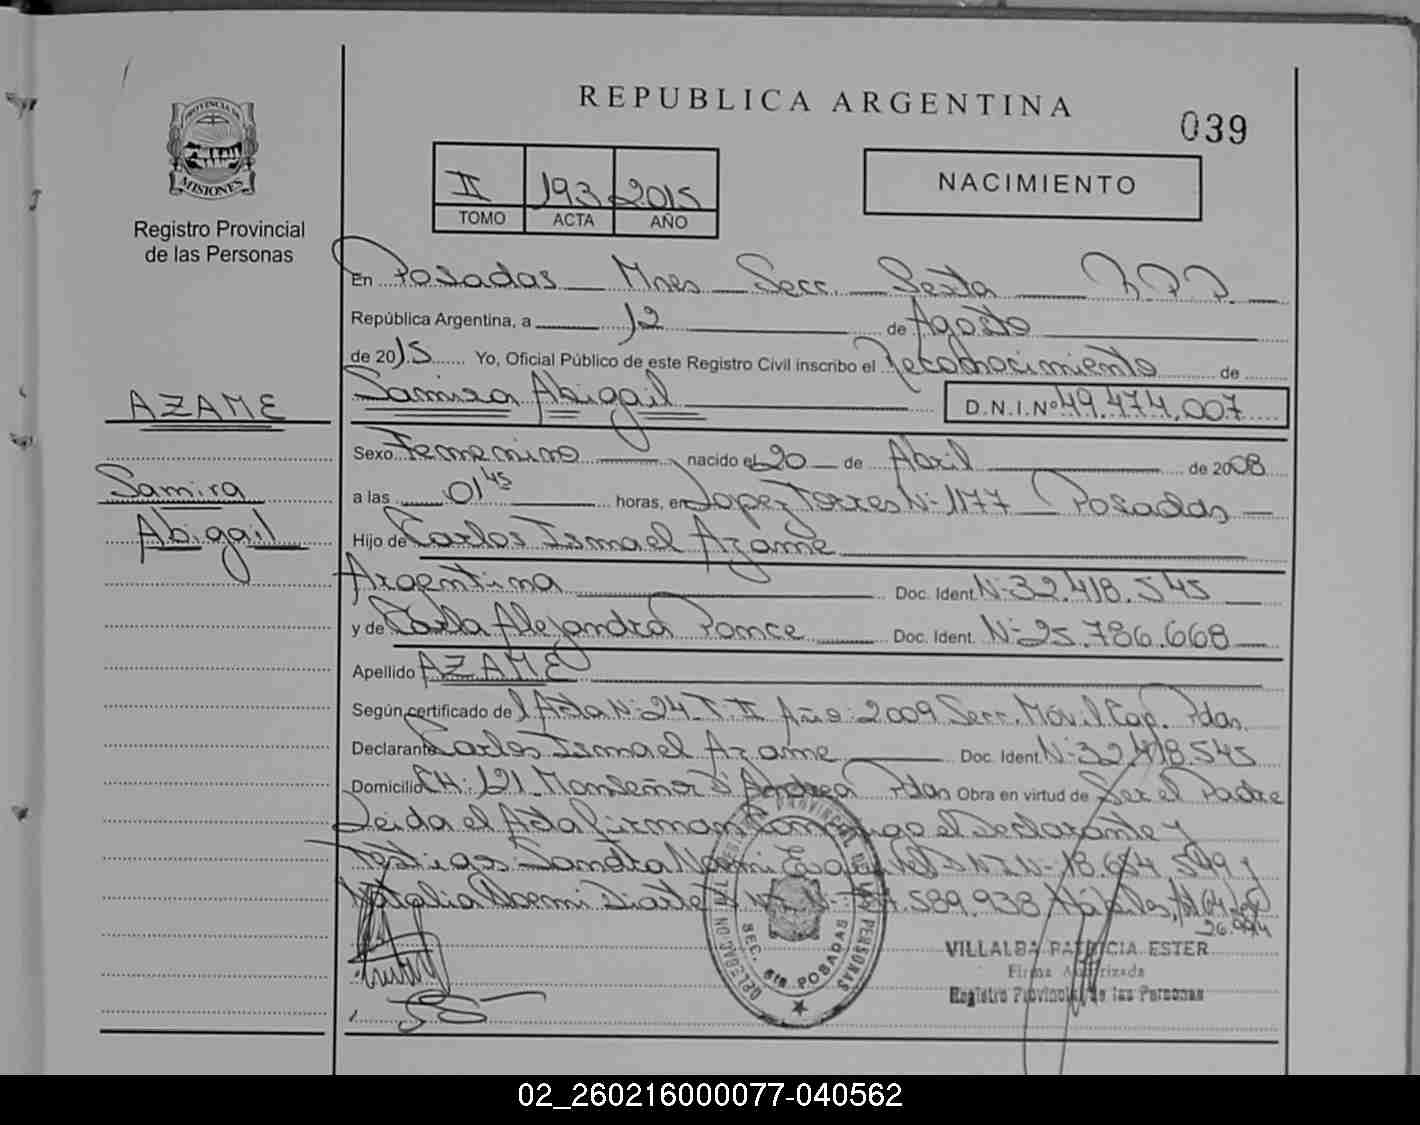 REPUBLICA ARGENTINA
039
PROVINCIA DE
MISIONES
Registro Provincial
de las Personas
II 193 2015
TOMO ACTA AÑO
NACIMIENTO
En Posadas Mnes Secc. Sexta
República Argentina, a 12 de Agosto
de 2015 Yo, Oficial Público de este Registro Civil inscribo el Reconocimiento de
Samira Abigail D.N.I.Nº 49.474.007
AZAME
Sexo Femenino nacido el 20 de Abril de 2008
Samira
a las 01 45 horas, en Lopez Torres Nº 1177 Posadas
Abigail
Hijo de Carlos Ismael Azame
Argentina Doc. Ident. Nº 32.418.545
y de Carla Alejandra Ponce Doc. Ident. Nº 25.786.668
Apellido AZAME
Según certificado de l Acta Nº 24 T. II Año: 2009 Secc. Móvil Cap. Pdas.
Declarante Carlos Ismael Azame Doc. Ident. Nº 32.418.545
Domicilio CH: 121 Monseñor D'Andrea Pdas Obra en virtud de Ser el Padre
Leida el Acta firman conmigo el Declarante y
testigos: Sandra Noemi DNI Nº 18. y
Natalia Noemi Duarte .589.938
VILLALBA PATRICIA ESTER
Firma Autorizada
Registro Provincial de las Personas
DELEGACION
PROVINCIAL DE LAS PERSONAS
SEC. 6ta POSADAS
02_260216000077-040562